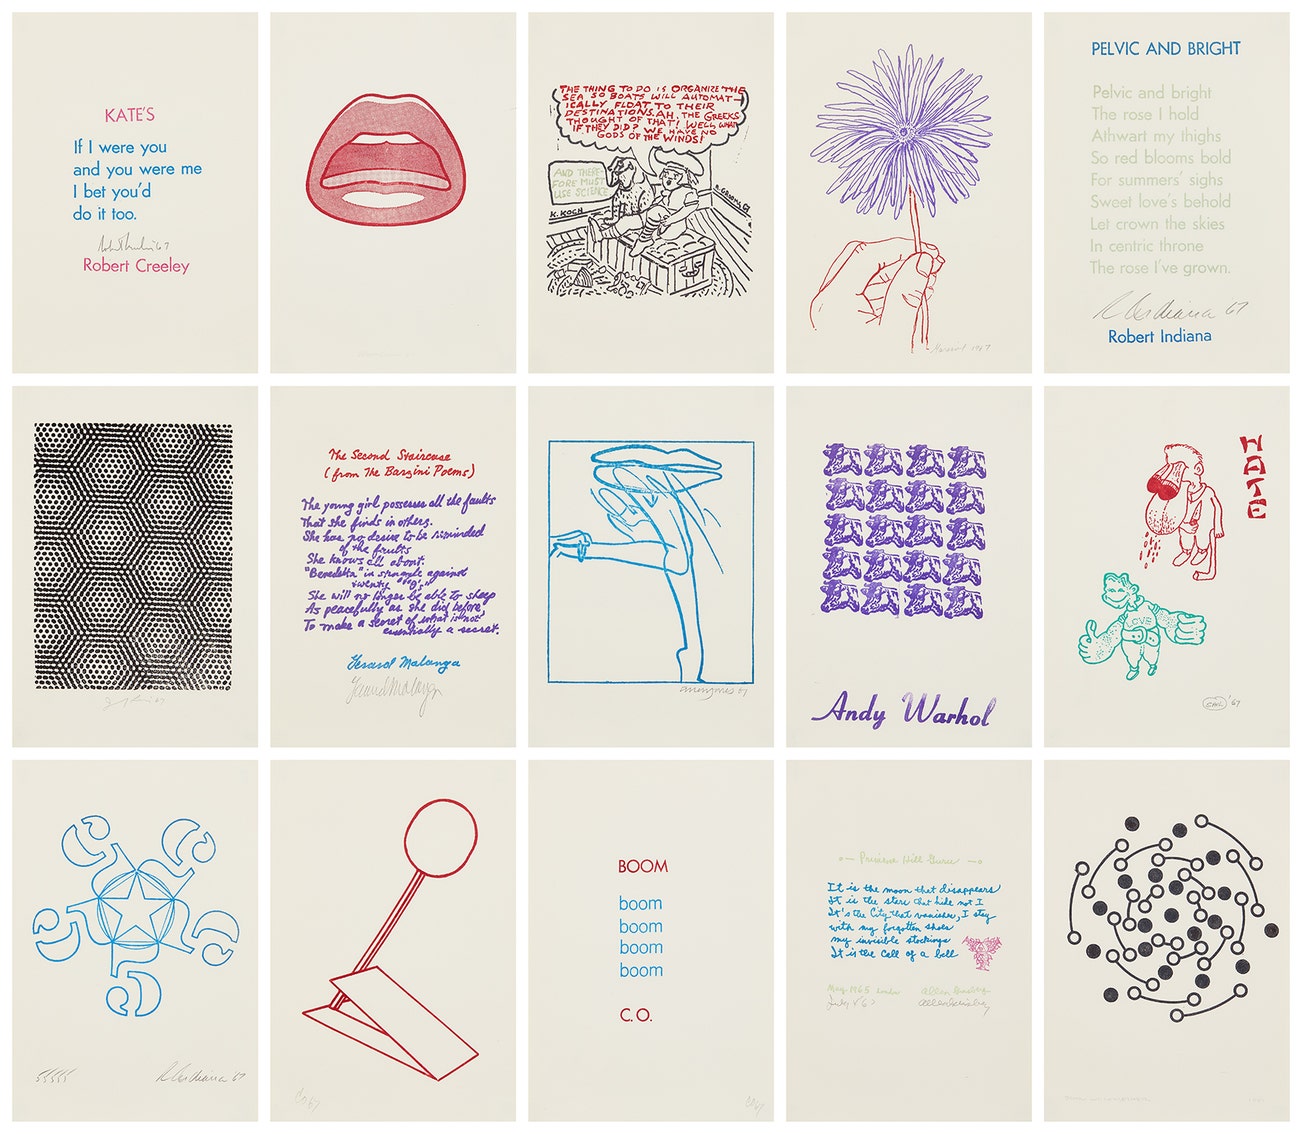 KATE'S
If I were you
and you were me
I bet you'd
do it too.
Robert Creeley
THE THING TO DO IS ORGANIZE THE
SEA SO BOATS WILL AUTOMAT-
ICALLY FLOAT TO THEIR
DESTINATIONS. AH, THE GREEKS
THOUGHT OF THAT! WELL, WHAT
IF THEY DID? WE HAVE NO
GODS OF THE WINDS!
AND THERE-
FORE MUST
USE SCIENCE
K. KOCH
R. GROOMS 67
1967
PELVIC AND BRIGHT
Pelvic and bright
The rose I hold
Athwart my thighs
So red blooms bold
For summers' sighs
Sweet love's behold
Let crown the skies
In centric throne
The rose I've grown.
R Indiana 67
Robert Indiana
The Second Staircase
(from The Barzini Poems)
The young girl possesses all the faults
That she finds in others.
She has no desire to be reminded
of the faults
She knows all about.
"Benedetta" in struggle against
twenty "9's"
She will no longer be able to sleep
As peacefully as she did before,
To make a secret of what is not
essentially a secret.
Gerard Malanga
Gerard Malanga
Allen Jones 67
Andy Warhol
HATE
LOVE
SAUL '67
55555
R Indiana '67
CO 67
BOOM
boom
boom
boom
boom
C.O.
CO 67
Primrose Hill Guru
It is the moon that disappears
It is the stars that hide not I
It's the City that vanishes, I stay
with my forgotten shoes
my invisible stockings
It is the call of a bell
May 1965
Allen Ginsberg
July 67
Allen Ginsberg